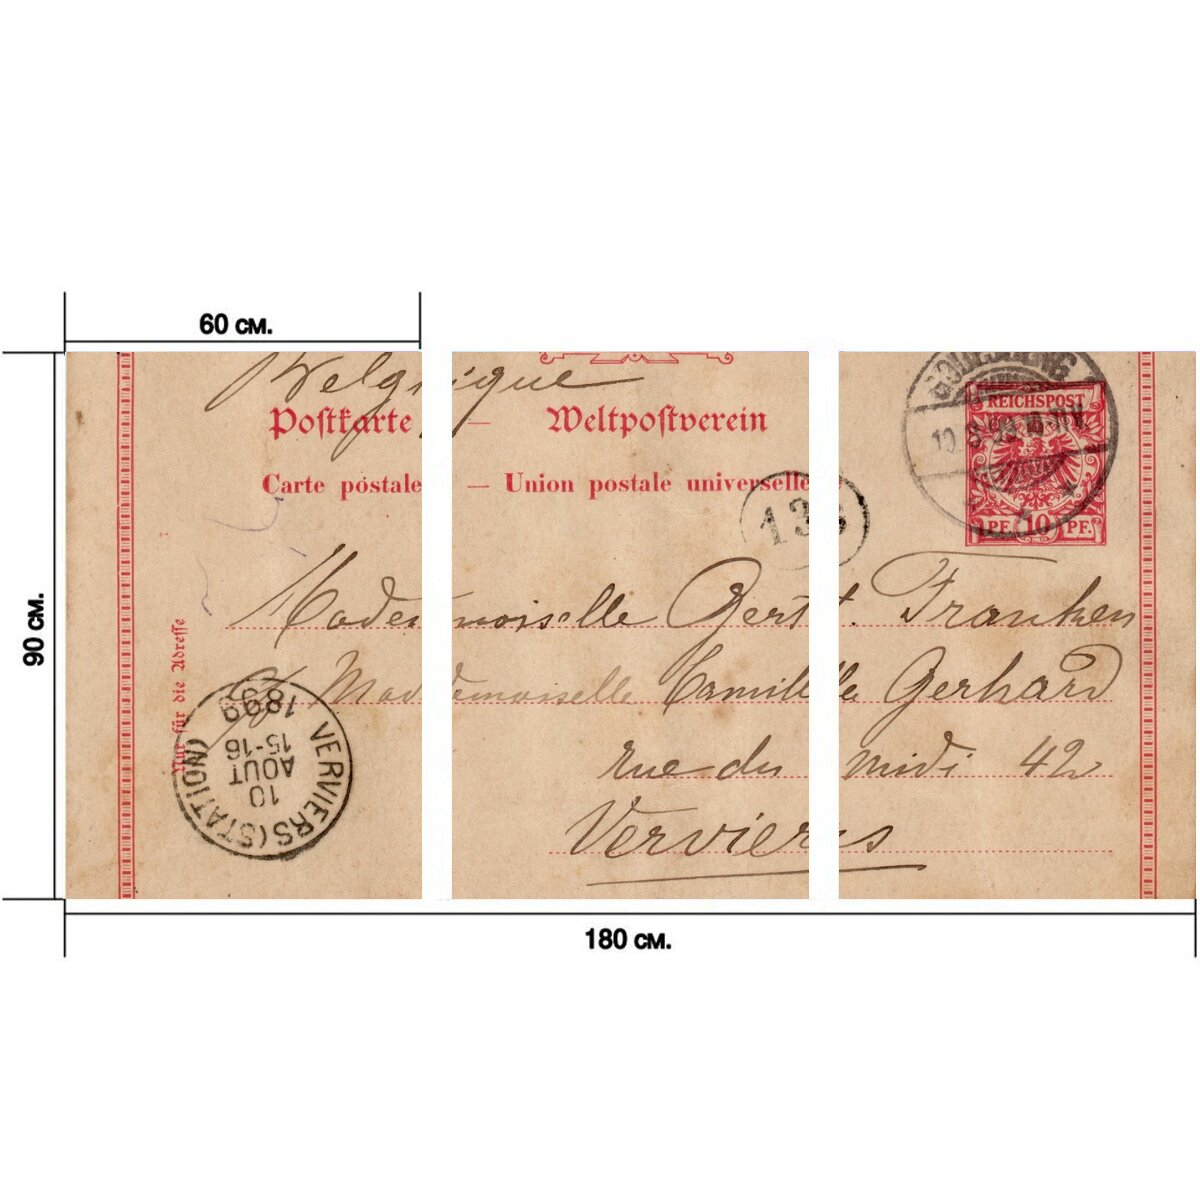 60 см.
90 см.
180 см.
Belgique
Postkarte — Weltpostverein
Carte postale — Union postale universelle
REICHSPOST
10 PF. 10 PF.
Mademoiselle Gert. Franken
Mademoiselle Camille Gerhard
rue du midi 42
Verviers
Nur für die Adresse
VERVIERS (STATION)
10
AOUT
15-16
1899